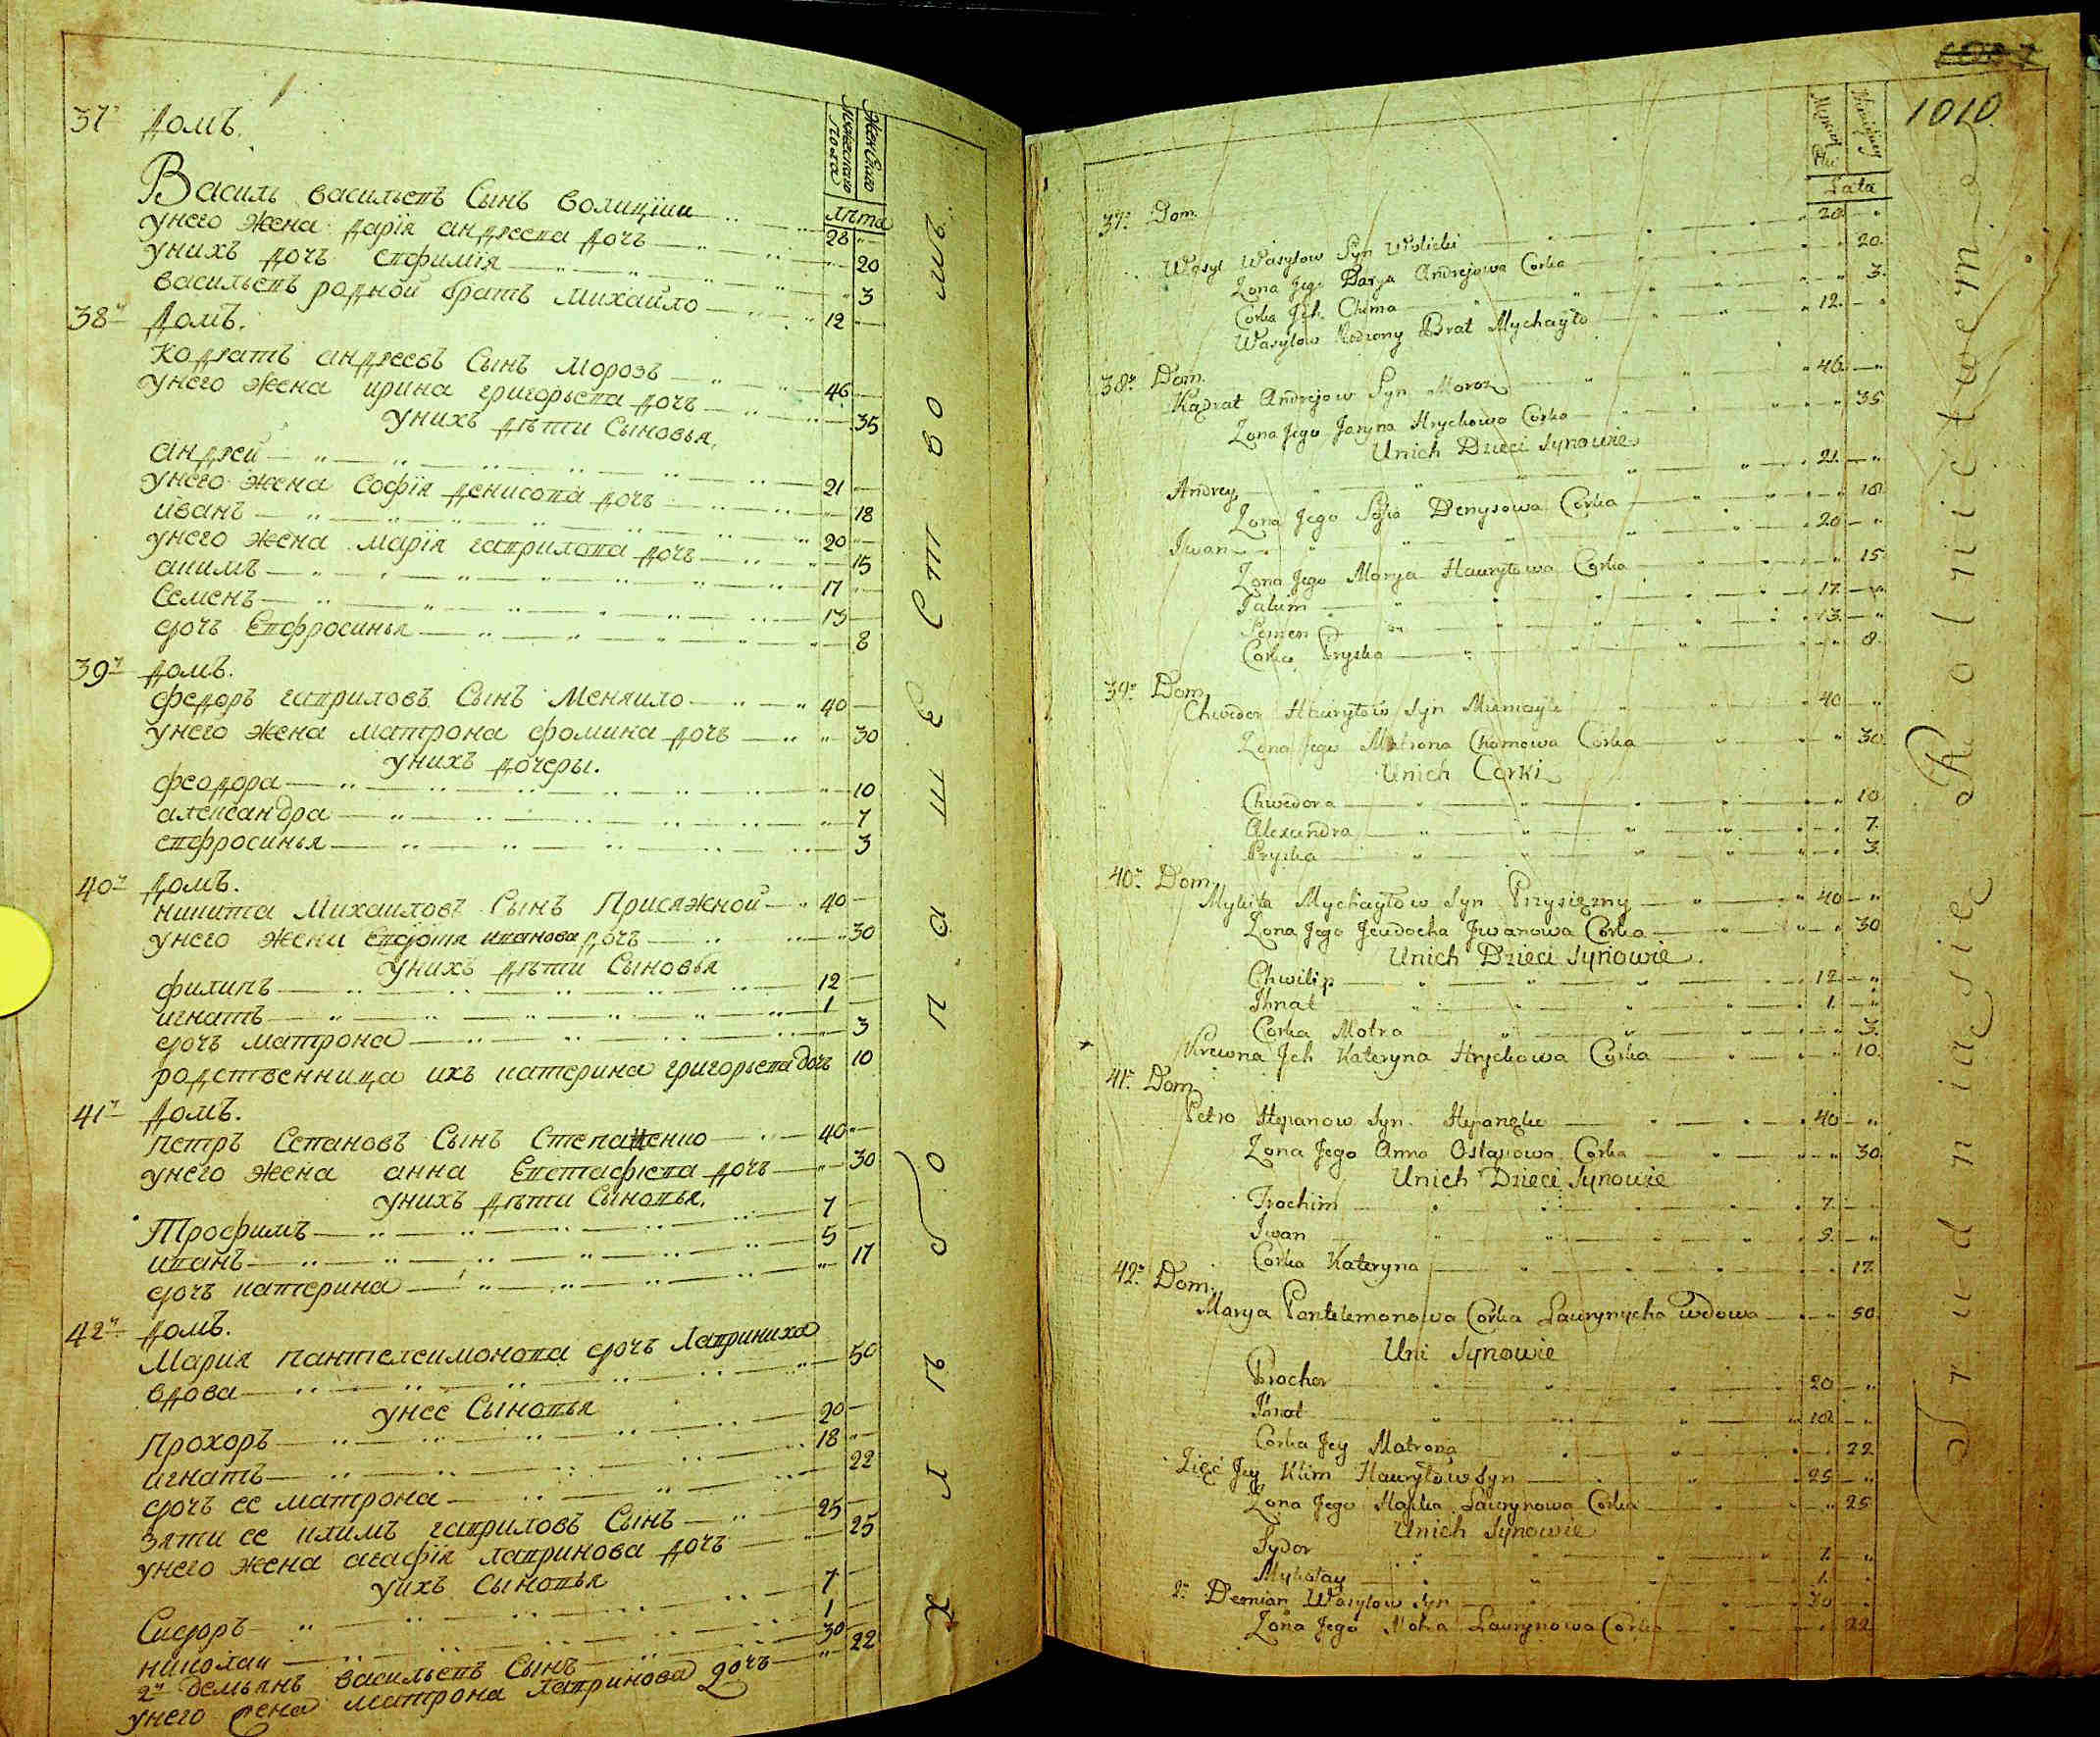 37й Домъ.
Женского
Мужеского
пола
лѣта
Василь васильевъ Сынъ волицкии 28
унего жена дарія андреева дочь 20
унихъ дочь евфимія 3
васильевъ родной братъ михайло 12
38й Домъ.
кодратъ андреевъ Сынъ морозъ 46
унего жена ирина григорьева дочь 35
унихъ дѣти Сыновья.
андреи 21
унего жена Софія денисова дочь 18
иванъ 20
унего жена марія гаврилова дочь 15
акимъ 17
Семенъ 13
дочь Евфросинья 8
39й домъ.
федоръ гавриловъ Сынъ Меняило 40
унего жена матрона фомина дочь 30
унихъ дочеры.
феодора 10
александра 7
евфросинья 3
40й домъ.
никита михаиловъ Сынъ Присяжной 40
унего жена Евдотия иванова дочь 30
унихъ дѣти Сыновья
филипъ 12
игнатъ 1
дочь матрона 3
родственница ихъ катерина григорьева дочь 10
41й домъ.
петръ Степановъ Сынъ Степаненко 40
унего жена анна Евстафиева дочь 30
унихъ дѣти Сыновья.
Трофимъ 7
иванъ 5
дочь катерина 17
42й домъ.
Мария пантелеимонова дочь Лавриниха
вдова 50
унее Сыновья
прохоръ 20
игнатъ 18
дочь ее матрона 22
зяти ее климъ гавриловъ Сынъ 25
унего жена агафія лавринова дочь 25
уихъ Сыновья
Сидоръ 7
николаи 1
2й демьянъ васильевъ Сынъ 30
унего жена матрона лавринова дочь 22
1010
Lata
37о Dom.
Wasyl Wasylow Syn Wolicki 28
Zona Jego Darya Andrejowa Corka 20.
Corka Jch Chima 3.
Wasylow Rodzony Brat Mychayło 12.
38о Dom.
Kadrat Andrejow Syn Moroz 46.
Zona Jego Jaryna Hrychowa Corka 35
Unich Dzieci Synowie
Andrey 21.
Zona Jego Sofia Denysowa Corka 18
Jwan 20
Zona Jego Marya Hawryłowa Corka 15
Jakim 17.
Semen 13.
Corka Pryska 8.
39о Dom.
Chwedor Hawryłow Syn Mieniayło 40
Zona Jego Matrona Chomowa Corka 30.
Unich Corki
Chwedora 10
Alexandra 7.
Pryska 3.
40о Dom.
Mykita Mychayłow Syn Przysięzny 40
Zona Jego Jewdocha Jwanowa Corka 30
Unich Dzieci Synowie.
Chwilip 12
Jhnat 1.
Corka Motra 3.
Krewna Jch Kateryna Hrychowa Corka 10.
41о Dom
Petro Stepanow Syn Stepanenko 40
Zona Jego Anna Ostapowa Corka 30
Unich Dzieci Synowie
Trochim 7.
Jwan 5.
Corka Kateryna 17.
42о Dom.
Marya Pantelemonowa CorkaŁawrynycha wdowa 50.
Uni Synowie
Prochor 20
Jhnat 18.
Corka Jey Matrona 22
Zięć Jey Klim Hawryłow Syn 25
Zona Jego Hapka Ławrynowa Corka 25
Unich Synowie
Sydor 7.
Mykołay 1.
2о Demian Wasylow Syn 30
Zona Jego Motra Ławrynowa Corka 22